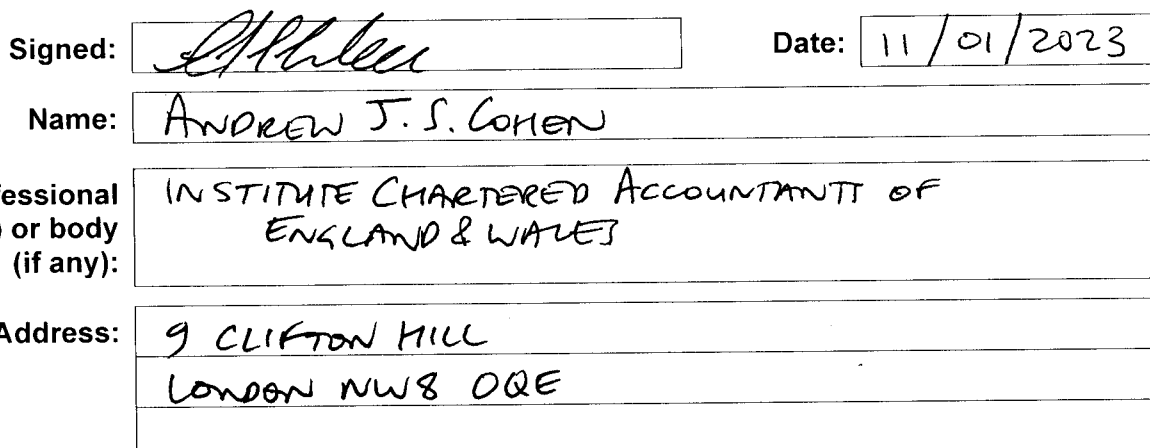 Signed:
Date: 11/01/2023
Name: ANDREW J. S. COHEN
fessional INSTITUTE CHARTERED ACCOUNTANTS OF
) or body ENGLAND & WALES
(if any):
Address: 9 CLIFTON HILL
LONDON NW8 0QE